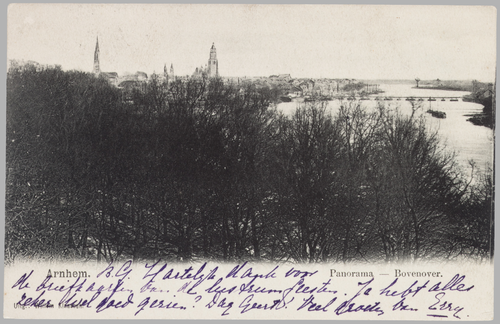 Arnhem. B.G. Hartelijk dank voor
Panorama — Bovenover.
de briefkaarten van de lustrumfeesten. Je hebt alles
zeker wel goed gezien? Dag Geert! Veel van